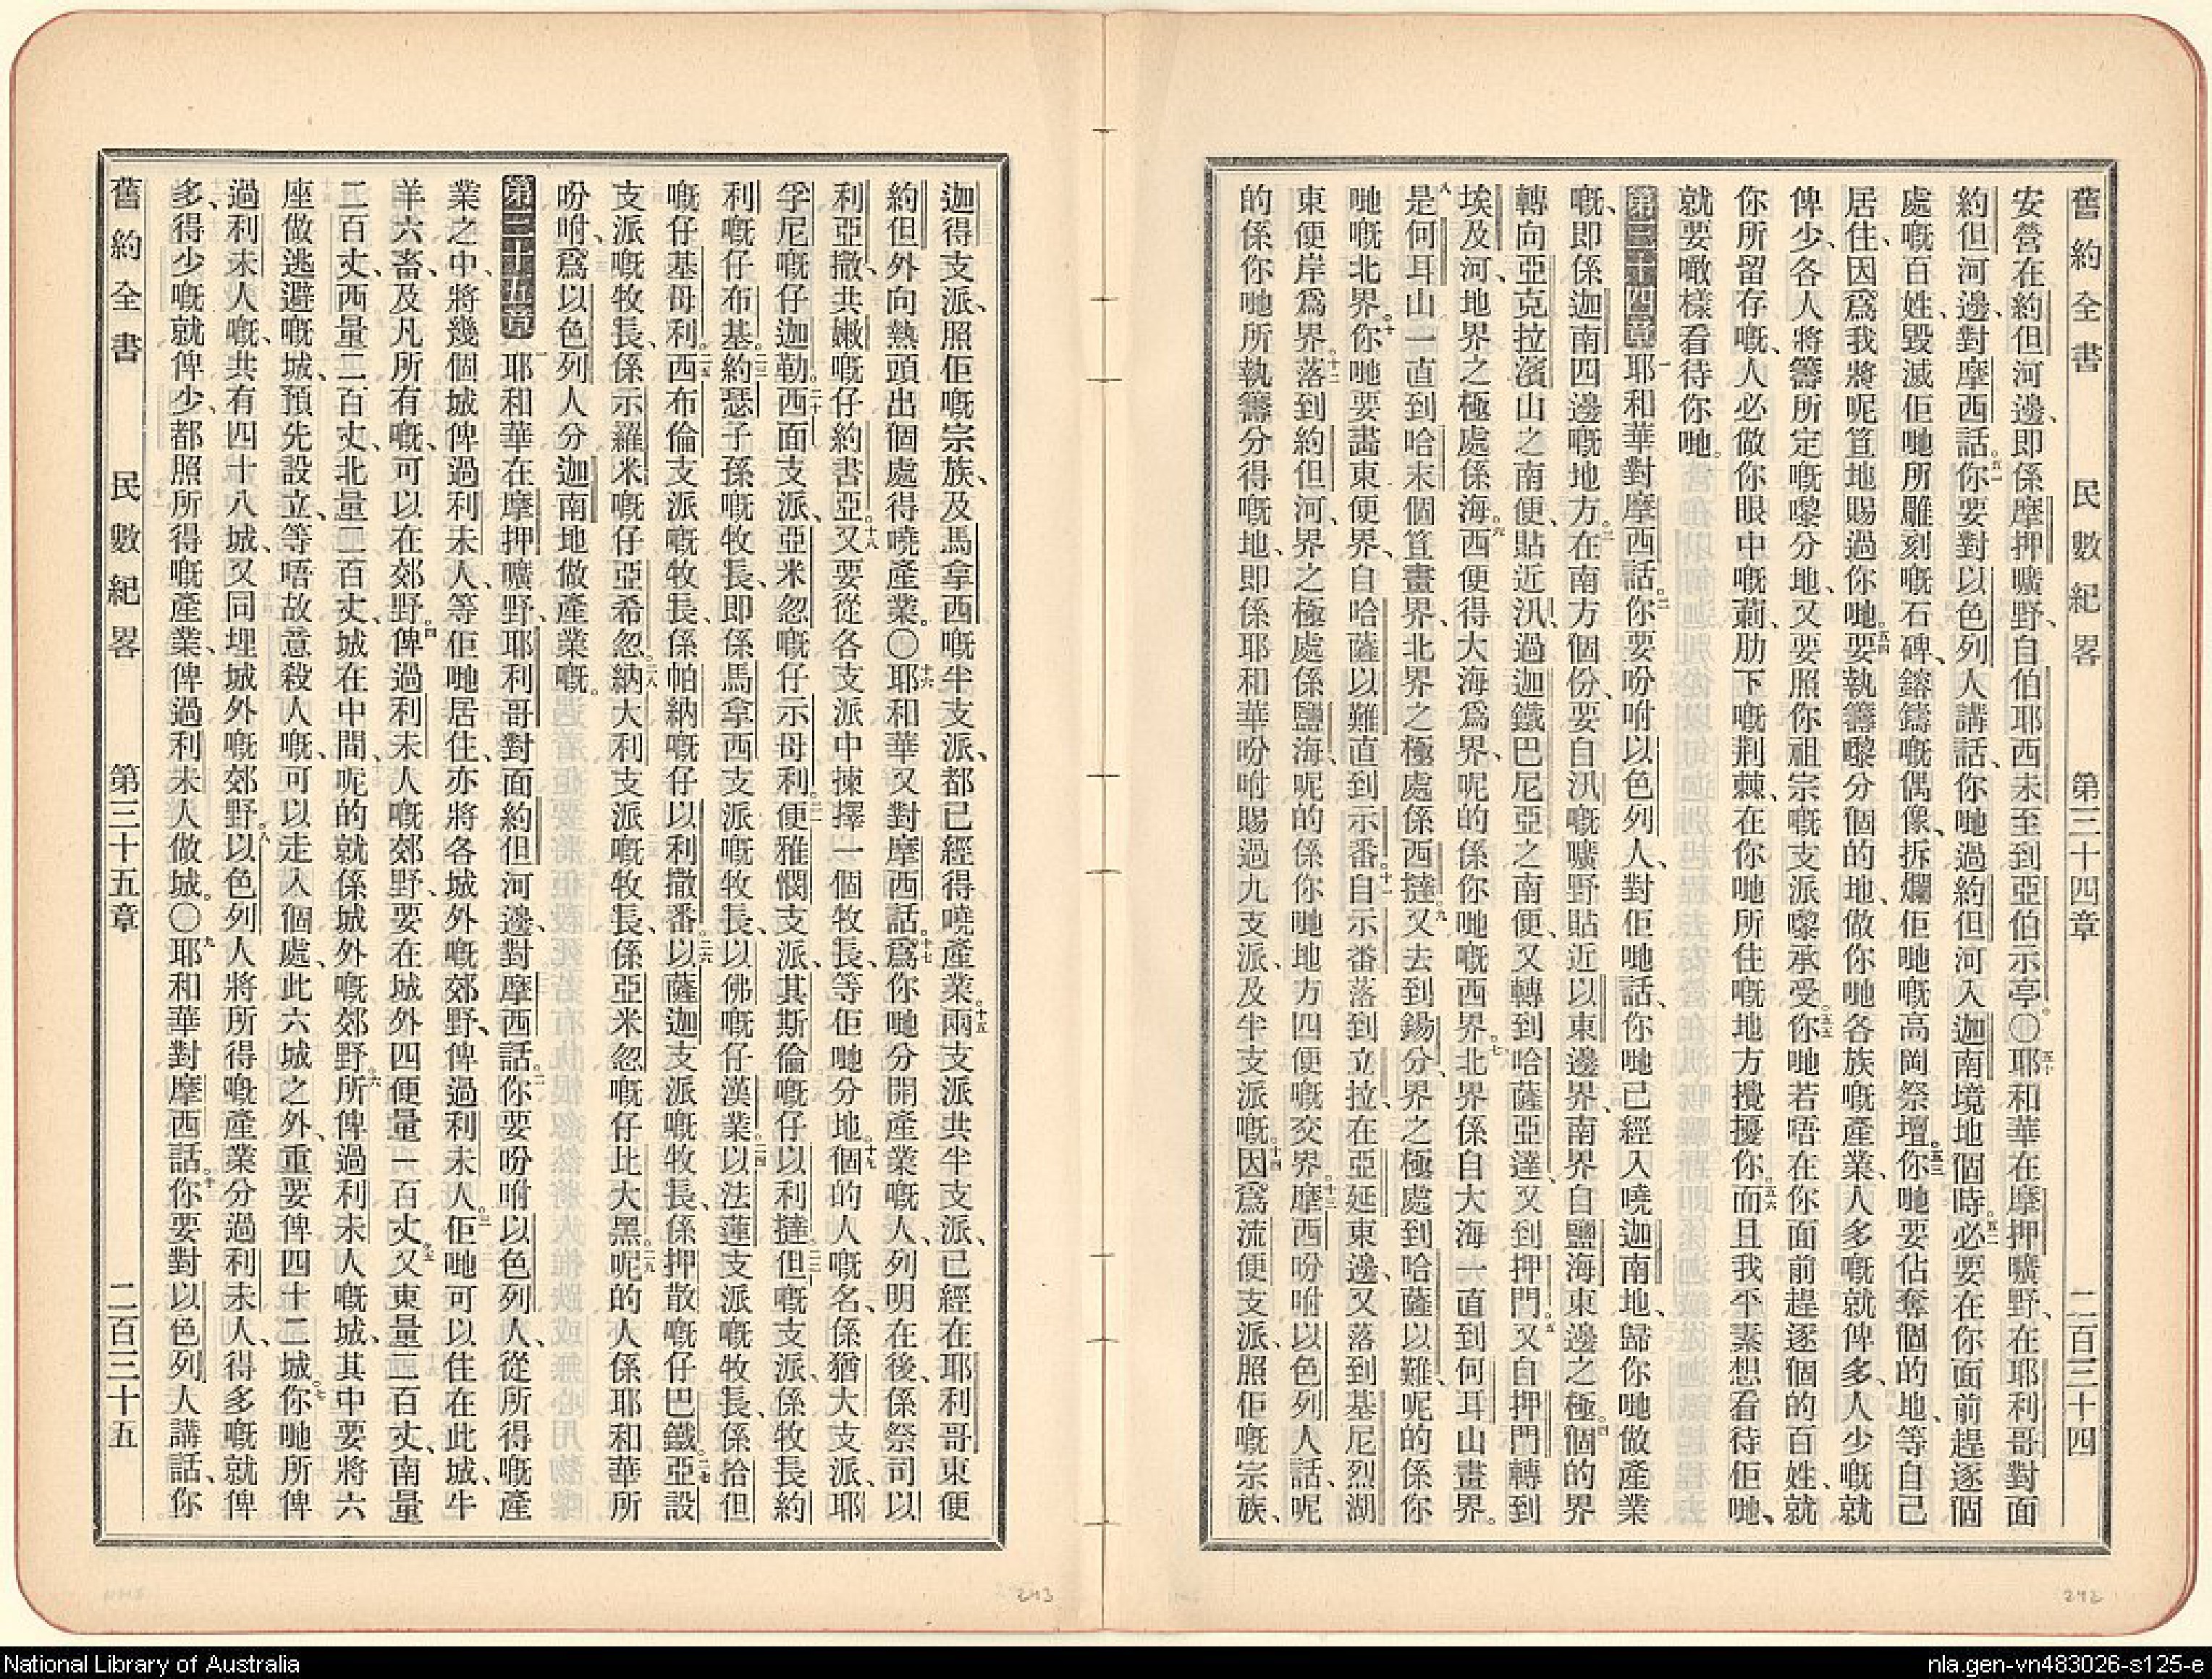 舊約全書 民數紀畧 第三十四章 二百三十四
安營在約但河邊、即係摩押曠野、自伯耶西末至到亞伯示亭。〇五十耶和華在摩押曠野、在耶利哥對面
約但河邊、對摩西話。五一你要對以色列人講話、你哋過約但河入迦南境地個時。五二必要在你面前趕逐個
處嘅百姓、毀滅佢哋所雕刻嘅石碑、鎔鑄嘅偶像、拆爛佢哋嘅高岡祭壇。五三你哋要佔奪個的地、等自己
居住、因爲我將呢笪地賜過你哋。五四要執籌嚟分個的地、做你哋各族嘅產業、人多嘅就俾多、人少嘅就
俾少、各人將籌所定嘅嚟分地、又要照你祖宗嘅支派嚟承受。五五你哋若唔在你面前趕逐個的百姓、就
你所留存嘅、人必做你眼中嘅䓶、肋下嘅荆棘、在你哋所住嘅地方攪擾你。五六而且我平素想看待佢哋、
就要噉樣看待你哋。
第三十四章 一耶和華對摩西話。二你要吩咐以色列人、對佢哋話、你哋已經入嘵迦南地、歸你哋做產業
嘅、即係迦南四邊嘅地方。三在南方個份、要自汛嘅曠野貼近以東邊界、南界自鹽海東邊之極。四個的界
轉向亞克拉濱山之南便、貼近汛、過迦鐵巴尼亞之南便、又轉到哈薩亞達、又到押門。五又自押門轉到
埃及河、地界之極處係海。六西便得大海爲界、呢的係你哋嘅西界。七北界係自大海一直到何耳山畫界。
八是何耳山一直到哈末個笪畫界、北界之極處係西撻。九又去到錫分、界之極處到哈薩以難、呢的係你
哋嘅北界。十你哋要畵東便界、自哈薩以難直到示番。十一自示番落到立拉、在亞延東邊、又落到基尼烈湖
東便岸爲界。十二落到約但河、界之極處係鹽海、呢的係你哋地方四便嘅交界。十三摩西吩咐以色列人話、呢
的係你哋所執籌分得嘅地、即係耶和華吩咐賜過九支派、及半支派嘅。十四因爲流便支派、照佢嘅宗族、
迦得支派、照佢嘅宗族、及馬拿西嘅半支派、都已經得嘵產業。十五兩支派共半支派、已經在耶利哥東便
約但外向熱頭出個處得嘵產業。〇十六耶和華又對摩西話。十七爲你哋分開產業嘅人、列明在後、係祭司以
利亞撒、共嫩嘅仔約書亞。十八又要從各支派中揀擇一個牧長、等佢哋分地。十九個的人嘅名、係猶大支派、耶
孚尼嘅仔迦勒。二十西面支派、亞米忽嘅仔示母利。二一便雅憫支派、其斯倫嘅仔以利撻。二二但嘅支派、係牧長約
利嘅仔布基。二三約瑟子孫嘅牧長、即係馬拿西支派嘅牧長、以佛嘅仔漢業。二四以法蓮支派嘅牧長、係拾但
嘅仔基母利。二五西布倫支派嘅牧長、係帕納嘅仔以利撒番。二六以薩迦支派嘅牧長、係押散嘅仔巴鐵。二七亞設
支派嘅牧長、係示羅米嘅仔亞希忽。二八納大利支派嘅牧長、係亞米忽嘅仔比大黑。二九呢的人係耶和華所
吩咐、爲以色列人分迦南地做產業嘅。
第三十五章 一耶和華在摩押曠野、耶利哥對面約但河邊、對摩西話。二你要吩咐以色列人、從所得嘅產
業之中、將幾個城俾過利未人、等佢哋居住、亦將各城外嘅郊野、俾過利未人。三佢哋可以住在此城、牛
羊六畜、及凡所有嘅、可以在郊野。四俾過利未人嘅郊野、要在城外四便量一百丈。五又東量二百丈、南量
二百丈、西量二百丈、北量二百丈、城在中間、呢的就係城外嘅郊野。六所俾過利未人嘅城、其中要將六
座做逃避嘅城、預先設立、等唔故意殺人嘅、可以走入個處、此六城之外、重要俾四十二城。七你哋所俾
過利未人嘅、共有四十八城、又同埋城外嘅郊野。八以色列人將所得嘅產業分過利未人、得多嘅就俾
多、得少嘅就俾少、都照所得嘅產業、俾過利未人做城。〇九耶和華對摩西話。十你要對以色列人講話、你
舊約全書 民數紀畧 第三十五章 二百三十五
242
243
National Library of Australia
nla.gen-vn483026-s125-e